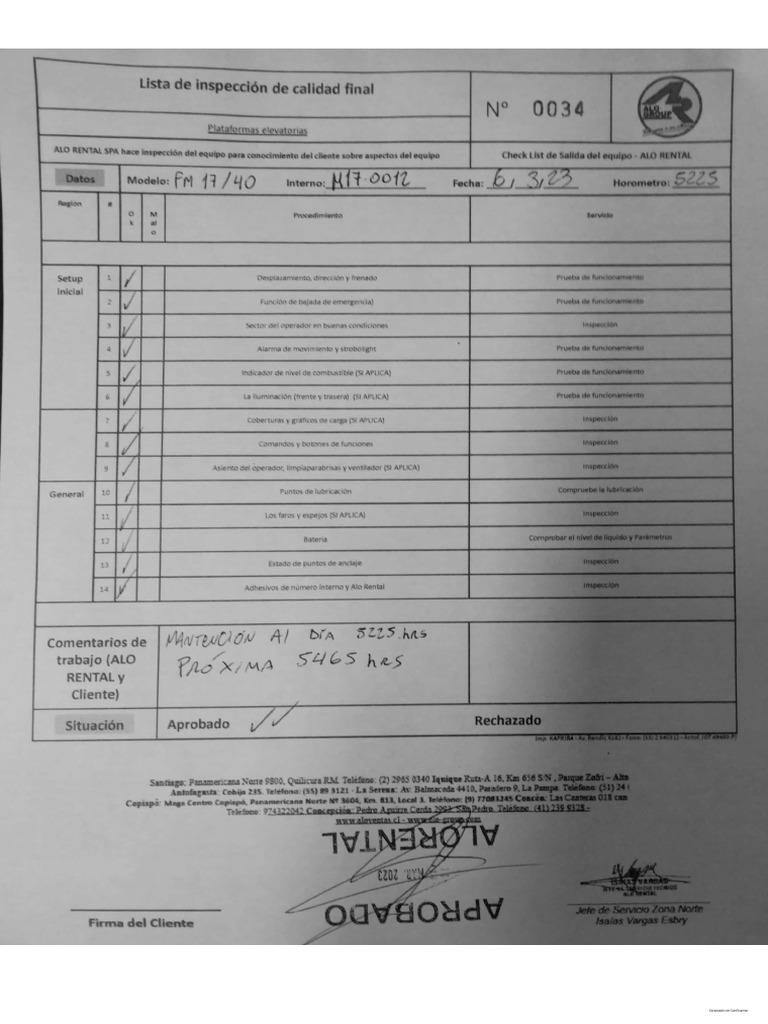 Lista de inspección de calidad final
N° 0034
ALO GROUP
Plataformas elevatorias
ALO RENTAL SPA hace inspección del equipo para conocimiento del cliente sobre aspectos del equipo
Check List de Salida del equipo - ALO RENTAL
Datos Modelo: FM 17/40 Interno: M17-0012 Fecha: 6, 3, 23 Horometro: 5225
Región # Ok Malo Procedimiento Servicio
Setup inicial
1 ✓ Desplazamiento, dirección y frenado Prueba de funcionamiento
2 ✓ Función de bajada de emergencia) Prueba de funcionamiento
3 ✓ Sector del operador en buenas condiciones Inspección
4 ✓ Alarma de movimiento y strobolight Prueba de funcionamiento
5 ✓ Indicador de nivel de combustible (SI APLICA) Prueba de funcionamiento
6 ✓ La iluminación (frente y trasera) (SI APLICA) Prueba de funcionamiento
7 ✓ Coberturas y gráficos de carga (SI APLICA) Inspección
8 ✓ Comandos y botones de funciones Inspección
9 ✓ Asiento del operador, limpiaparabrisas y ventilador (SI APLICA) Inspección
General
10 ✓ Puntos de lubricación Compruebe la lubricación
11 ✓ Los faros y espejos (SI APLICA) Inspección
12 ✓ Bateria Comprobar el nivel de líquido y Parámetros
13 ✓ Estado de puntos de anclaje Inspección
14 ✓ Adhesivos de número interno y Alo Rental Inspección
Comentarios de trabajo (ALO RENTAL y Cliente)
MANTENCIÓN Al DÍA 5225 hrs
PRÓXIMA 5465 hrs
Situación Aprobado ✓✓ Rechazado
Santiago: Panamericana Norte 9800, Quilicura RM. Teléfono: (2) 2965 0340 Iquique Ruta-A 16, Km 656 S/N, Parque Zofri - Alto
Antofagasta: Cobija 235. Teléfono: (55) 89 3121 - La Serena: Av. Balmaceda 4410, Paradero 9, La Pampa. Teléfono: (51) 24
Copiapó: Mega Centro Copiapó, Panamericana Norte N° 3604, Km. 813, Local 3. Teléfono: (9) 77081245 Concón: Las Canteras 018 con
Teléfono: 974322042 Concepción: Pedro Aguirre Cerda San Pedro. Teléfono: (41) 239 8328 -
www.aloventas.cl - www.alo-group.com
ALORENTAL
MAR. 2023
APROBADO
Firma del Cliente
ISAIAS VARGAS
ALO RENTAL
Jefe de Servicio Zona Norte
Isaías Vargas Esbry